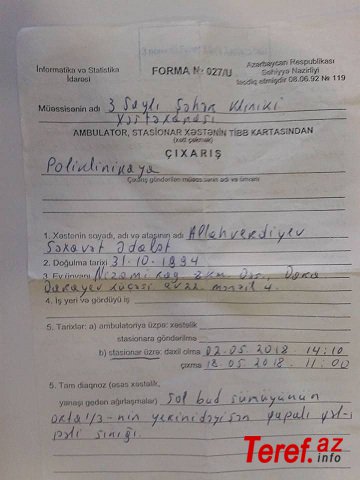 Informatika və Statistika İdarəsi
FORMA N-027/U
Azərbaycan Respublikası
Səhiyyə Nazirliyi
təsdiq etmişdir 08.06.92 № 119
Müəssisənin adı 3 Saylı Şəhər Kliniki
Xəstəxanası
AMBULATOR, STASİONAR XƏSTƏNİN TİBB KARTASINDAN
(xətt çəkməli)
ÇIXARIŞ
Poliklinikaya
Çıxarış göndərilən müəssisənin adı və ünvanı
1. Xəstənin soyadı, adı və atasının adı Allahverdiyev
Səxavət Ədalət
2. Doğulma tarixi 31-10-1994
3. Ev ünvanı Nizami Qara
Qarayev küçəsi ev 22 mənzil 4.
4. İş yeri və gördüyü iş
5. Tarixlər: a) ambulatoriya üzrə: xəstəlik
stasionara göndərilmə
b) stasionar üzrə: daxil olma 02.05.2018. 14:10
çıxma 18.05.2018. 11:00
5. Tam diaqnoz (əsas xəstəlik,
yanaşı gedən ağırlaşmalar) Sol bud sümüyünün
orta 1/3-nin yerini dəyişən qapalı qəl-
pəli sınığı.
Teref.az
info